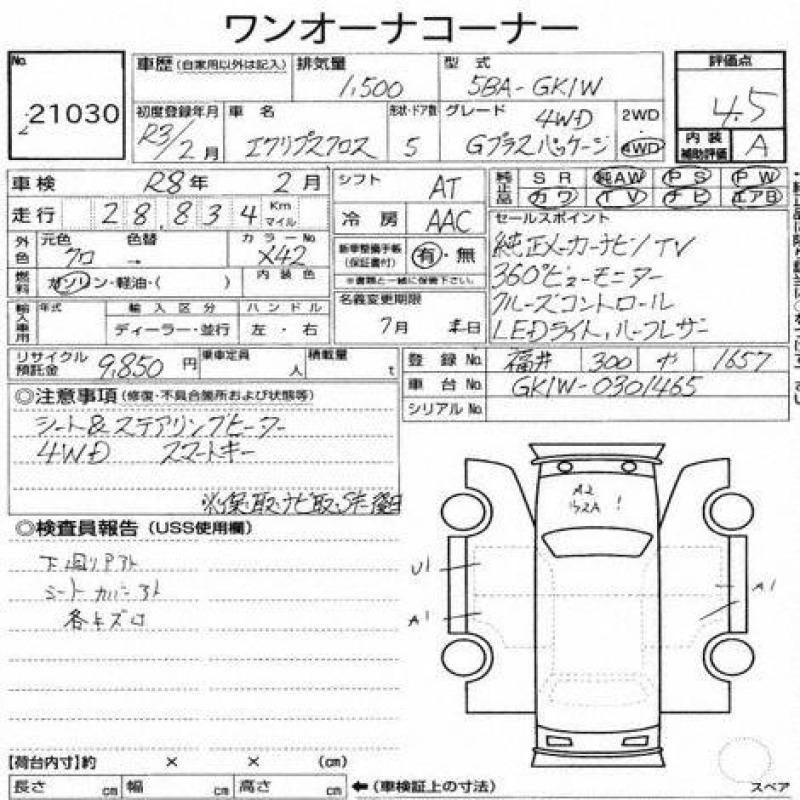 ワンオーナコーナー
No. 21030
車歴 (自家用以外は記入)
排気量 1,500
型式 5BA-GK1W
評価点 4.5
初度登録年月 R3/2月
車名 エクリプスクロス
形状・ドア数 5
グレード 4WD Gプラスパッケージ
2WD 4WD
内装補助評価 A
車検 R8年 2月
シフト AT
純正品 SR 純AW PS PW
カワ TV ナビ エアB
走行 28,834 Km マイル
冷房 AAC
セールスポイント
純正メーカーナビンTV
360°ビューモニター
クルーズコントロール
LEDライト、ハーフレザー
外色 元色 クロ 色替 → カラーNo. X42
新車整備手帳(保証書付) 有・無
※書類と一緒に保管下さい。
燃料 ガソリン・軽油・( ) 内装色
名義変更期限 7月 末日
輸入車用 年式 輸入区分 ハンドル
ディーラー・並行 左・右
リサイクル預託金 9,850円 乗車定員 人 積載量 t
登録No. 福井 300 や 1657
車台No. GK1W-0301465
シリアルNo.
◎注意事項(修復・不具合箇所および状態等)
シート&ステアリングヒーター
4WD スマートキー
※保・取・ナビ取・Sキー後日
◎検査員報告(USS使用欄)
下廻リサビ
シートカバー
各キズ
A2
U1
A1
A1
【荷台内寸】約 × × (cm)
長さ cm 幅 cm 高さ cm ←(車検証上の寸法)
スペア